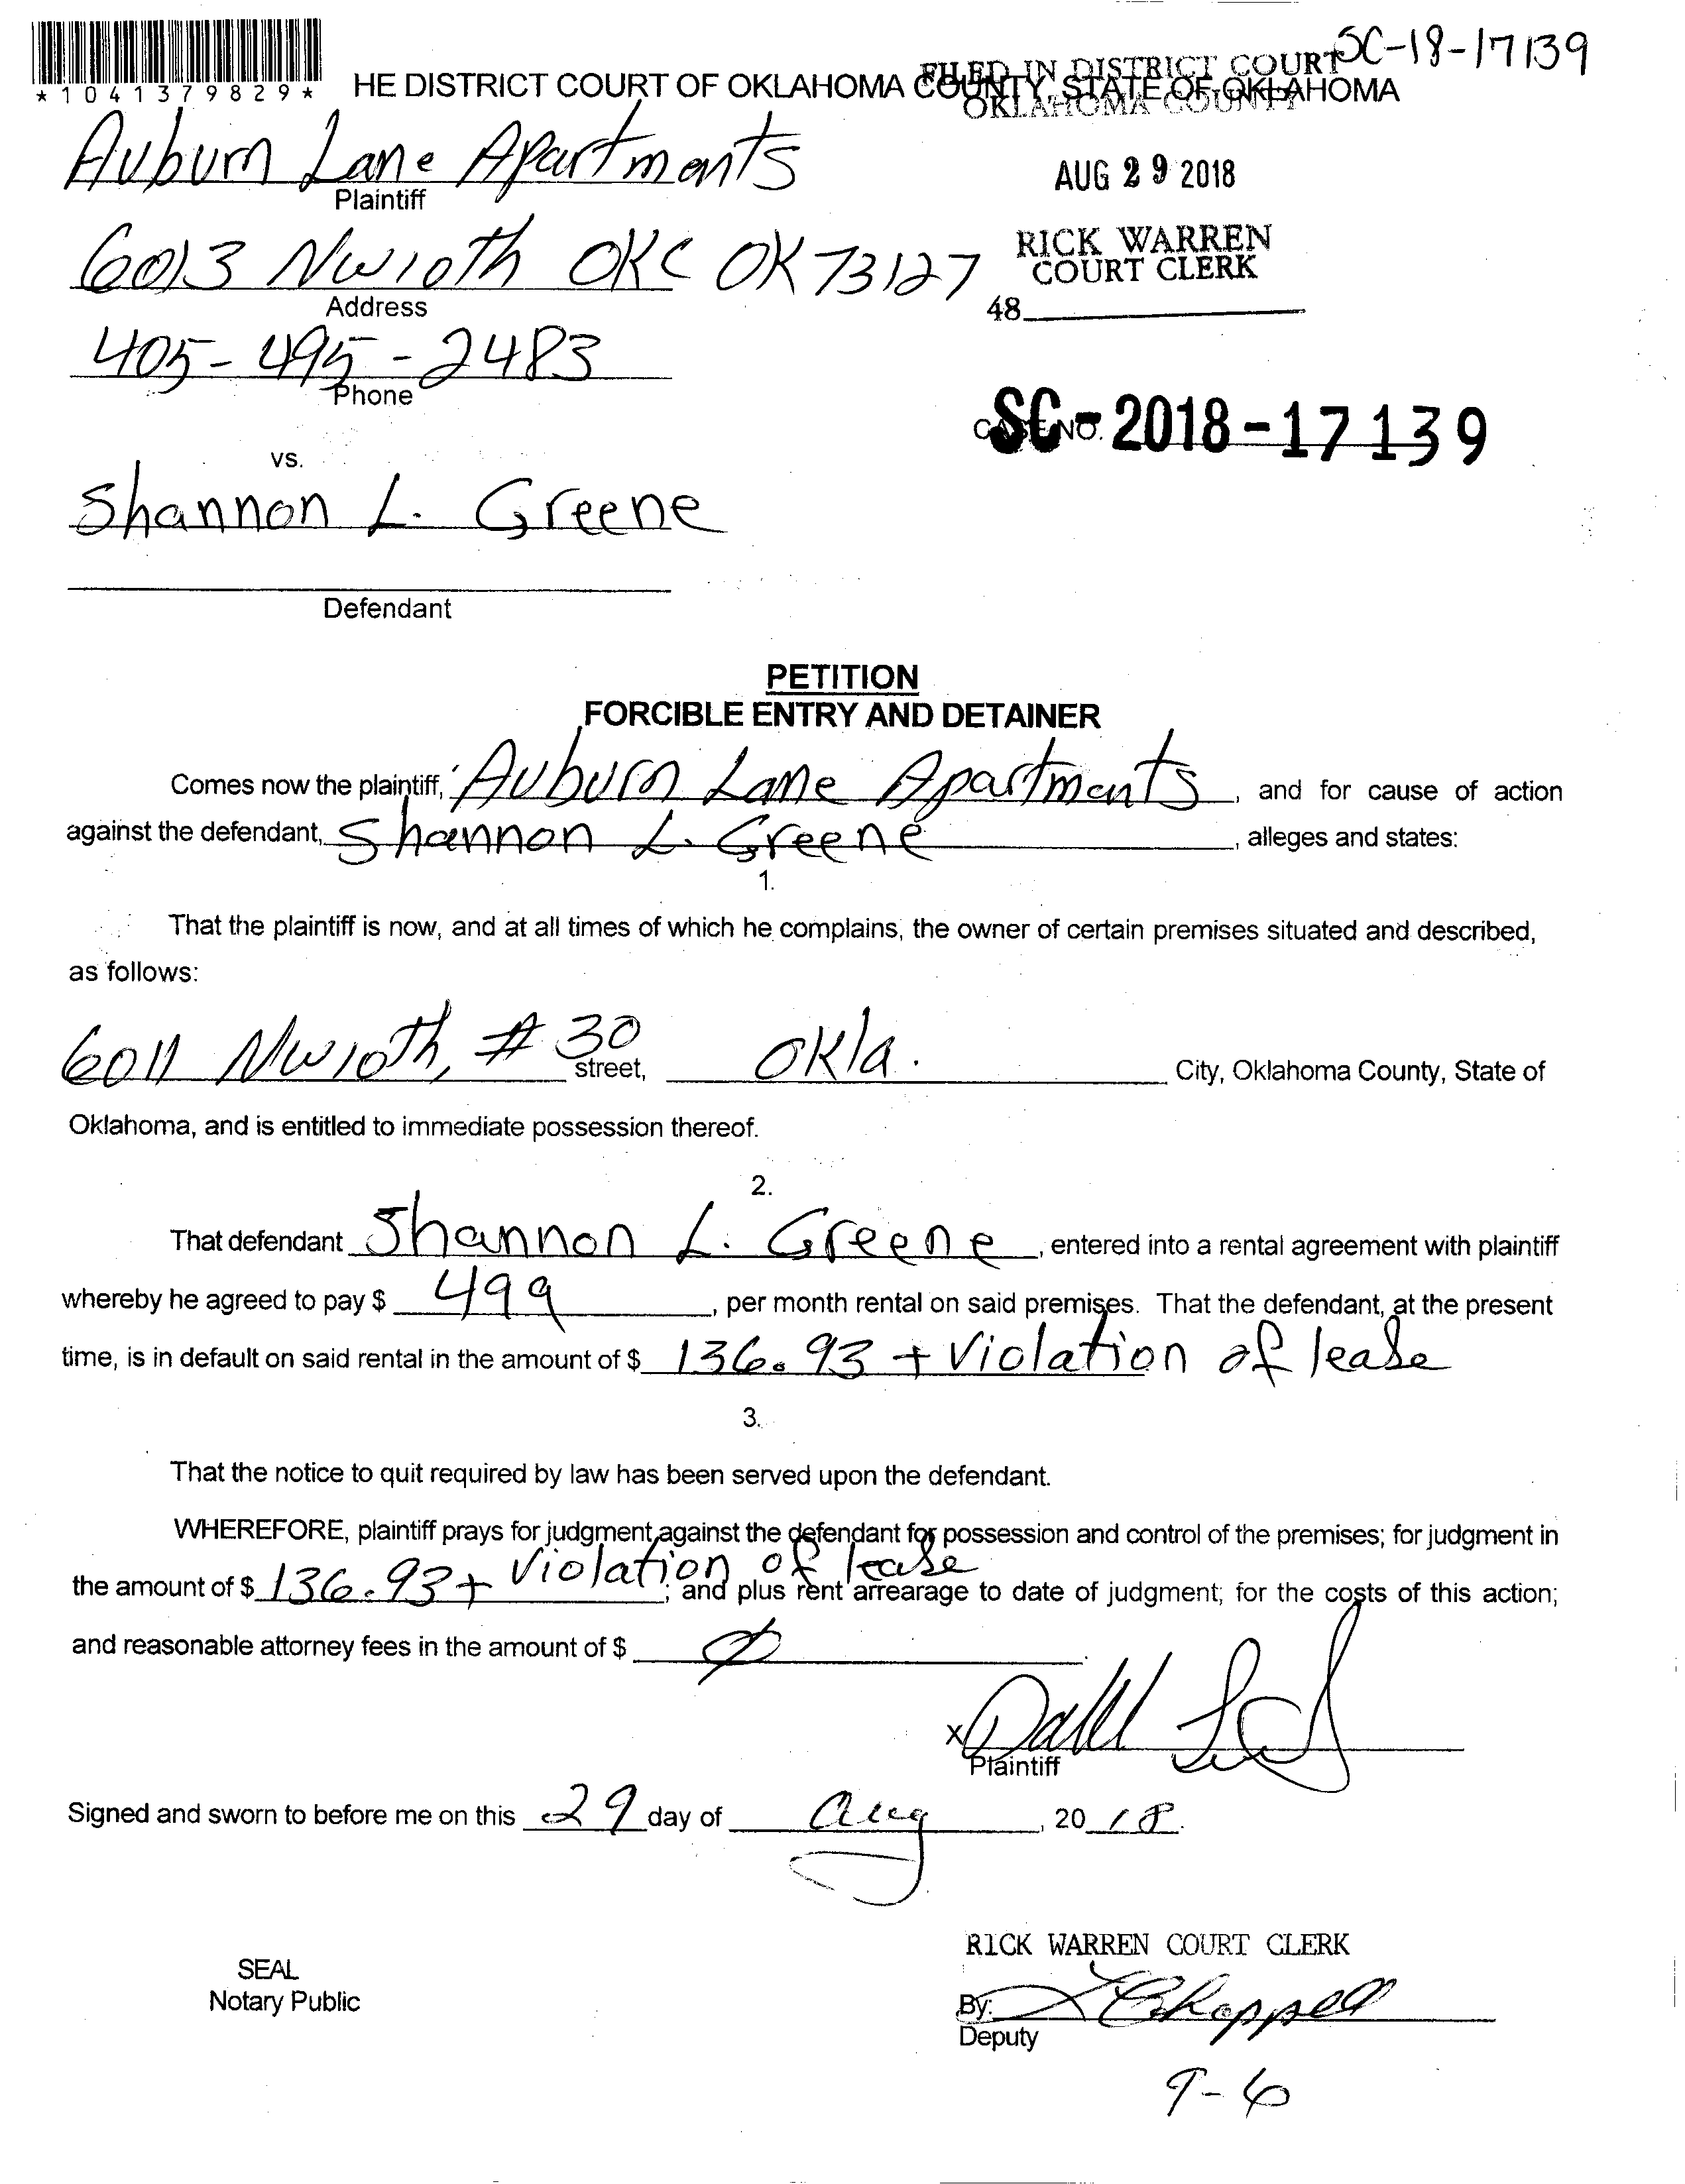 SC-18-17139
*1041379829*
HE DISTRICT COURT OF OKLAHOMA COUNTY, STATE OF OKLAHOMA
FILED IN DISTRICT COURT
OKLAHOMA COUNTY
Auburn Lane Apartments
Plaintiff
AUG 29 2018
6013 NW 10th OKC OK 73127
Address
RICK WARREN
COURT CLERK
48
405-495-2483
Phone
CASE NO.
SC-2018-17139
vs.
Shannon L. Greene
Defendant
PETITION
FORCIBLE ENTRY AND DETAINER
Comes now the plaintiff, Auburn Lane Apartments, and for cause of action
against the defendant, Shannon L. Greene, alleges and states:
1.
That the plaintiff is now, and at all times of which he complains, the owner of certain premises situated and described,
as follows:
6011 NW 10th, # 30 street, Okla. City, Oklahoma County, State of
Oklahoma, and is entitled to immediate possession thereof.
2.
That defendant Shannon L. Greene, entered into a rental agreement with plaintiff
whereby he agreed to pay $ 499, per month rental on said premises. That the defendant, at the present
time, is in default on said rental in the amount of $ 136.93 + Violation of lease
3.
That the notice to quit required by law has been served upon the defendant.
WHEREFORE, plaintiff prays for judgment against the defendant for possession and control of the premises; for judgment in
the amount of $ 136.93 + Violation of lease; and plus rent arrearage to date of judgment; for the costs of this action;
and reasonable attorney fees in the amount of $ Ø.
X
Plaintiff
Signed and sworn to before me on this 29 day of Aug, 2018.
RICK WARREN COURT CLERK
SEAL
Notary Public
By: Chappell
Deputy
9-6